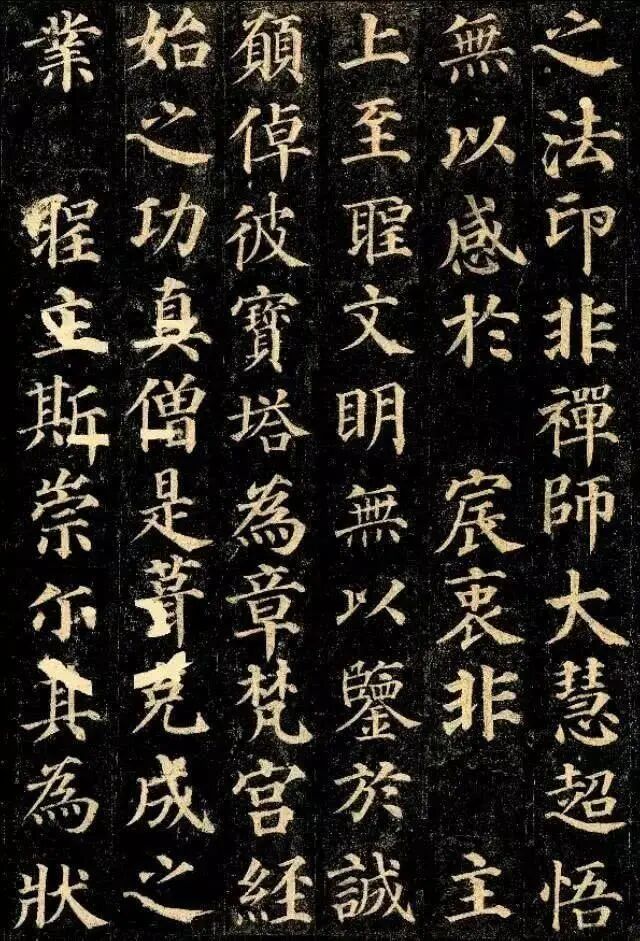 之法印非禪師大慧超悟
無以感於宸衷非主
上至聖文明無以鑒於誠
願倬彼寶塔為章梵宮經
始之功真僧是葺克成之
業聖主斯崇尒其為狀